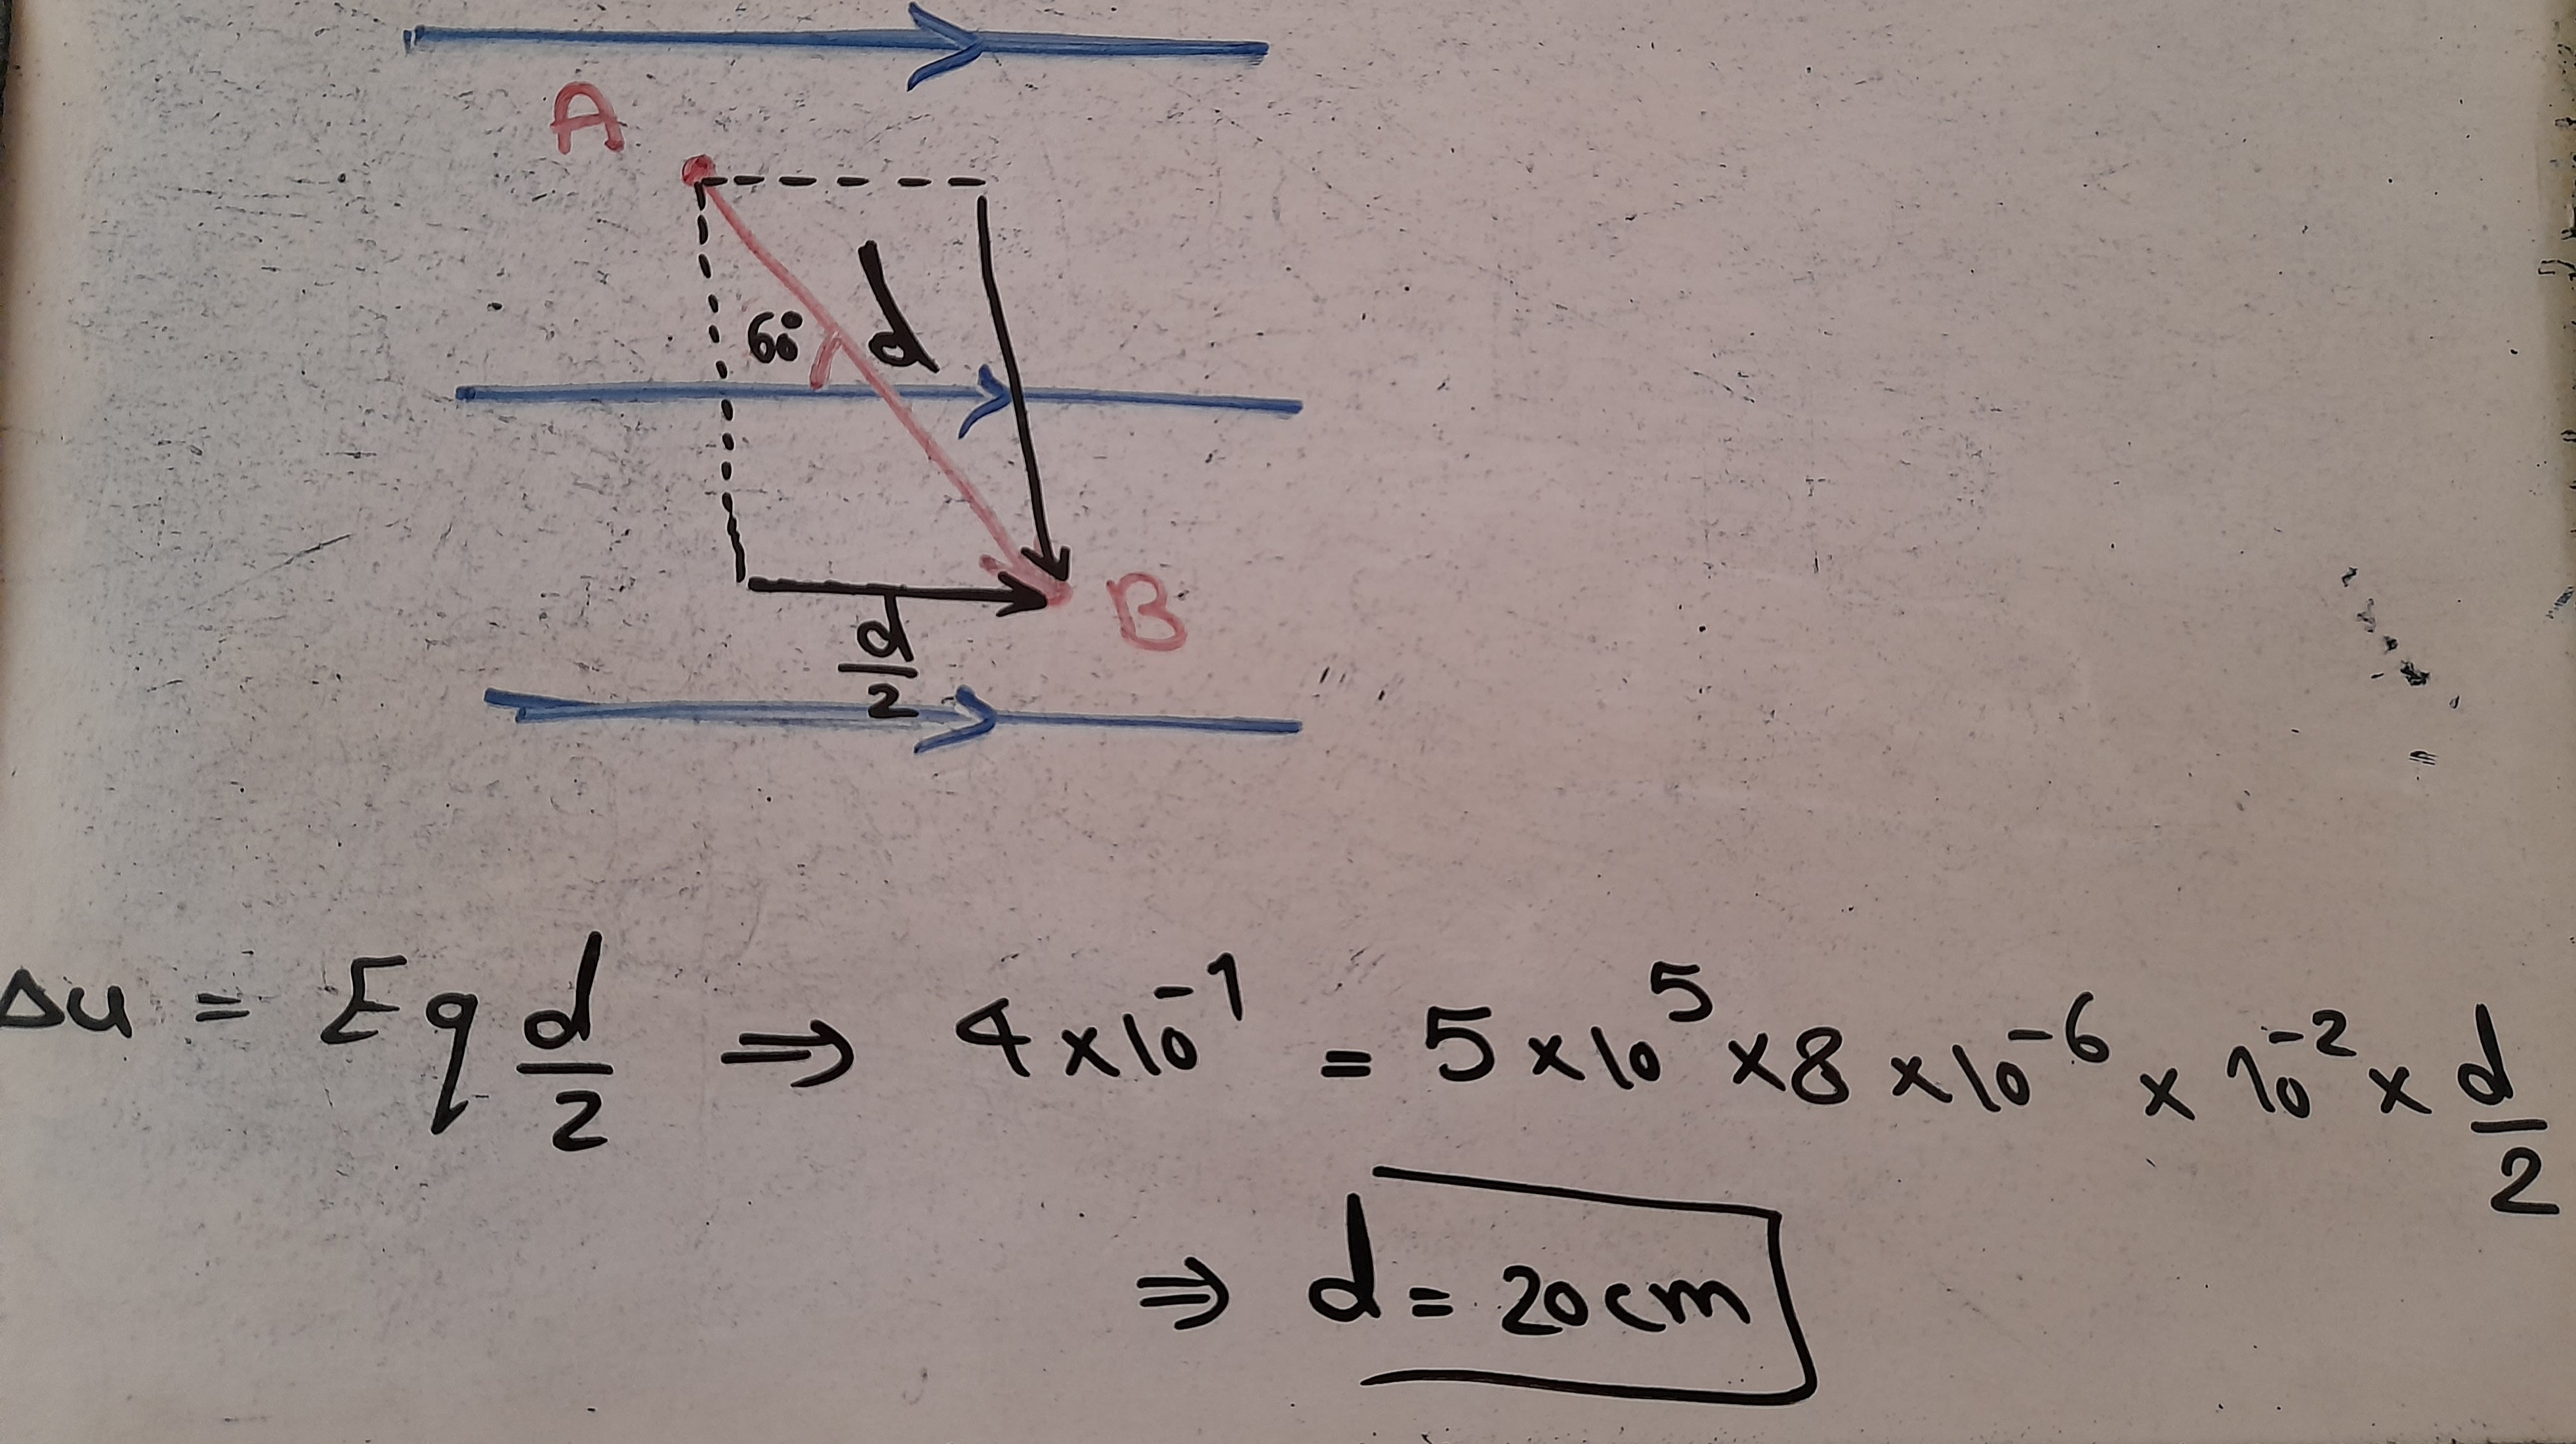 A
60°
d
B
d/2
Δu = Eq d/2 ⇒ 4×10⁻¹ = 5×10⁵×8×10⁻⁶×10⁻²×d/2
⇒ d = 20cm